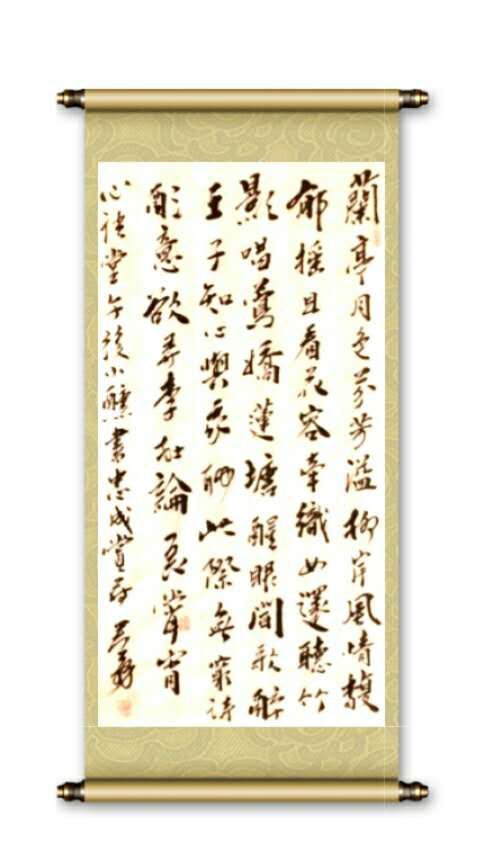 蘭亭月色芬芳溢柳岸風情馥
郁搖且看花容牽織女還聽竹
影唱鶯嬌蓮塘醒眼聞歌醉
王子知心與我聊此際無窮詩
意欲尋李杜論宵
心堂午後小醺書忠成賞存